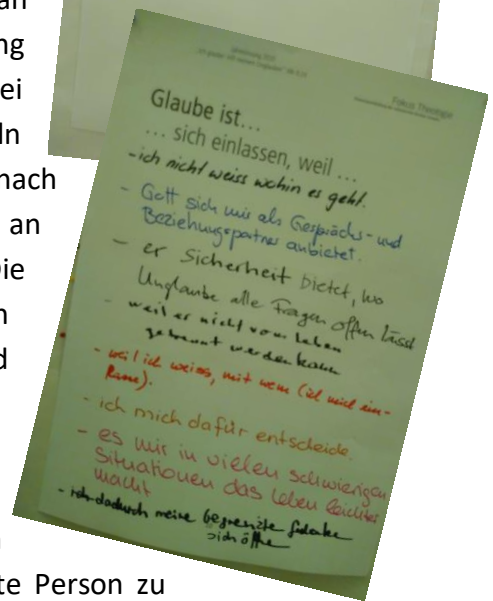 an
ng
ei
ln
nach
an
Die
n
d
te Person zu
Fokus Theologie
Glaube ist...
... sich einlassen, weil ...
- ich nicht weiss wohin es geht.
- Gott sich mir als Gesprächs- und
Beziehungspartner anbietet.
- er Sicherheit bietet, wo
Unglaube alle Fragen offen lässt
- weil er nicht vom Leben
getrennt werden kann
- weil ich weiss, mit wem (ich mich ein-
lasse).
- ich mich dafür entscheide.
- es mir in vielen schwierigen
Situationen das Leben leichter
macht
- ich dadurch meine begrenzte
sich öffne